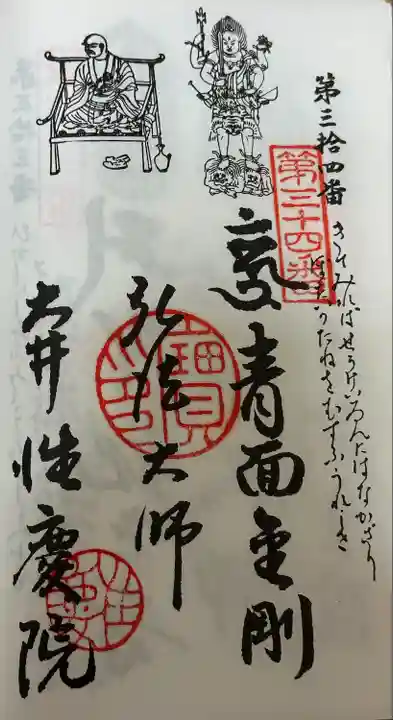 第三拾四番
きてみればせうけいゐんにはなかざり
ぼだいのたねをむすぶうれしき
第三十四番
青面金剛
弘法大師
大井 性慶院